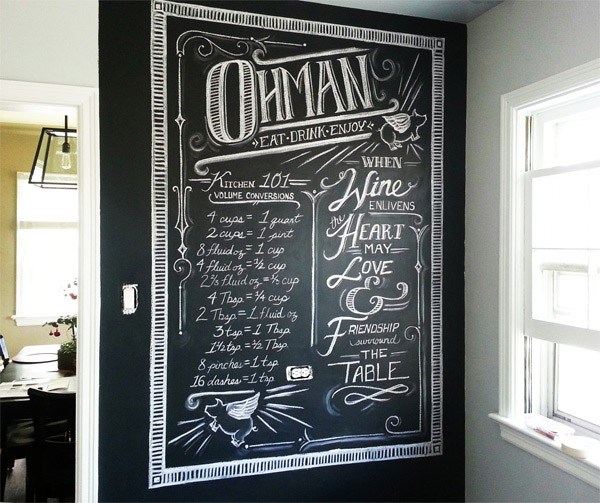 OHMAN
EAT · DRINK · ENJOY
KITCHEN 101
VOLUME CONVERSIONS
4 cups = 1 quart
2 cups = 1 pint
8 fluid oz = 1 cup
4 fluid oz = ½ cup
2⅔ fluid oz = ⅓ cup
4 Tbsp. = ¼ cup
2 Tbsp = 1 fluid oz
3 tsp = 1 Tbsp.
1½ tsp = ½ Tbsp.
8 pinches = 1 tsp.
16 dashes = 1 tsp.
WHEN
Wine
ENLIVENS
the
HEART
MAY
LOVE
&
FRIENDSHIP
surround
THE
TABLE